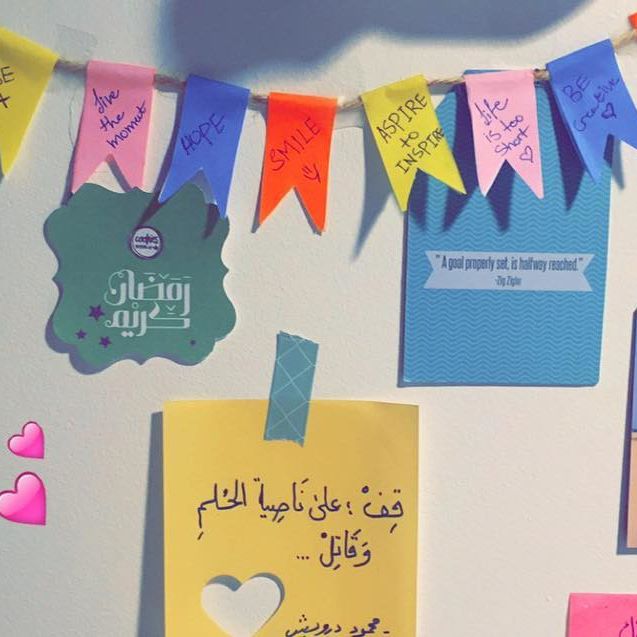 live
the
moment
HOPE
SMILE
ASPIRE
to
INSPIRE
life
is too
short
BE
creative
رمضان
كريم
"A goal properly set, is halfway reached."
-Zig Ziglar
قِفْ ؛ على نَاصِيةّ الحُلمِ
وَقَاتِلْ ...
- محمود درويش